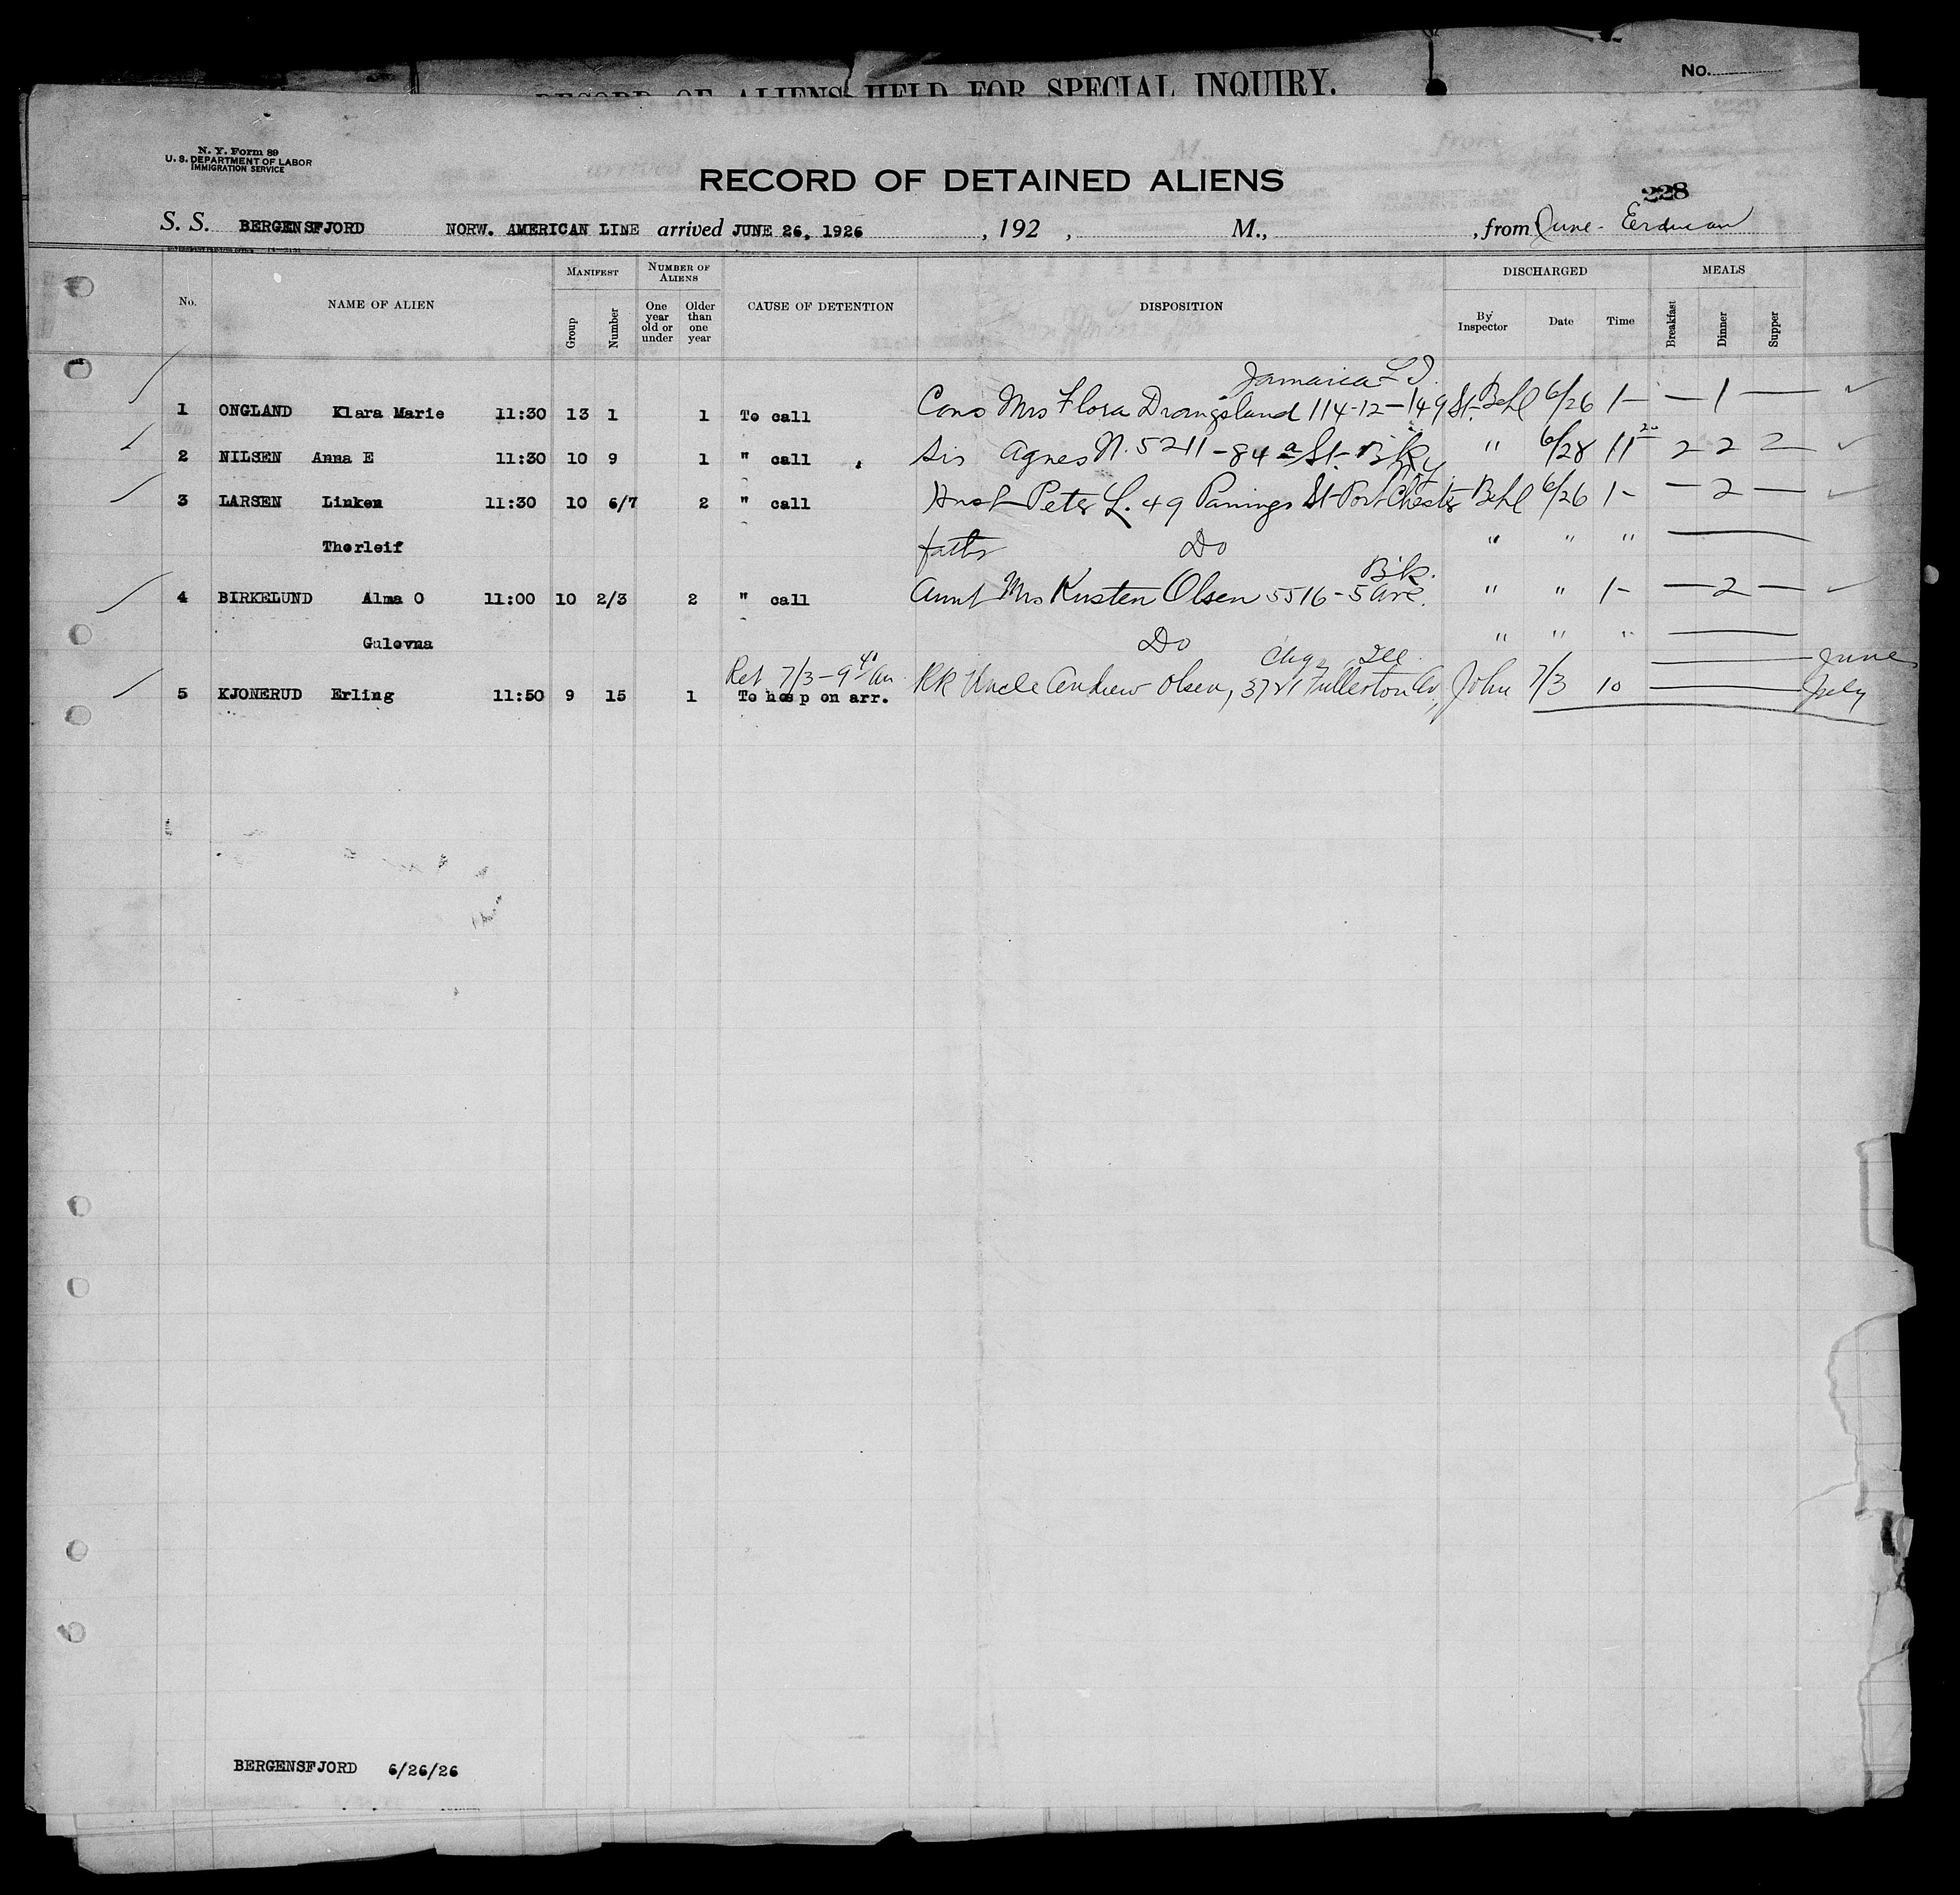 RECORD OF ALIENS HELD FOR SPECIAL INQUIRY.
No.
N. Y. Form 89
U. S. DEPARTMENT OF LABOR
IMMIGRATION SERVICE
RECORD OF DETAINED ALIENS
228
S. S. BERGENSFJORD NORW. AMERICAN LINE arrived JUNE 26, 1926 , 192 , M., , from June - Erdman
No. NAME OF ALIEN MANIFEST NUMBER OF ALIENS CAUSE OF DETENTION DISPOSITION DISCHARGED MEALS
Group Number One year old or under Older than one year By Inspector Date Time Breakfast Dinner Supper
Jamaica L I.
1 ONGLAND Klara Marie 11:30 13 1 1 To call Cons Mrs Flora Drangsland 114-12-149 St. Behl 6/26 1- — 1 —
2 NILSEN Anna E 11:30 10 9 1 " call Sis Agnes N. 5211-84 St- Bk " 6/28 11 20 2 2 2
N Y
3 LARSEN Linken 11:30 10 6/7 2 " call Husb Peter L. 49 St- Port Chester Behl 6/26 1- — 2 —
Thorleif father Do " " " —
Bk.
4 BIRKELUND Alma O 11:00 10 2/3 2 " call Aunt Mrs Kirsten Olsen 5516-5 Ave. " " 1- — 2 —
Gulovna Do " " " —
Ret. 7/3-9 40 am Chgo Ill — June
5 KJONERUD Erling 11:50 9 15 1 To hosp on arr. RR Uncle Andrew Olsen, 3721 Fullerton Av, John 7/3 10 — July
BERGENSFJORD 6/26/26